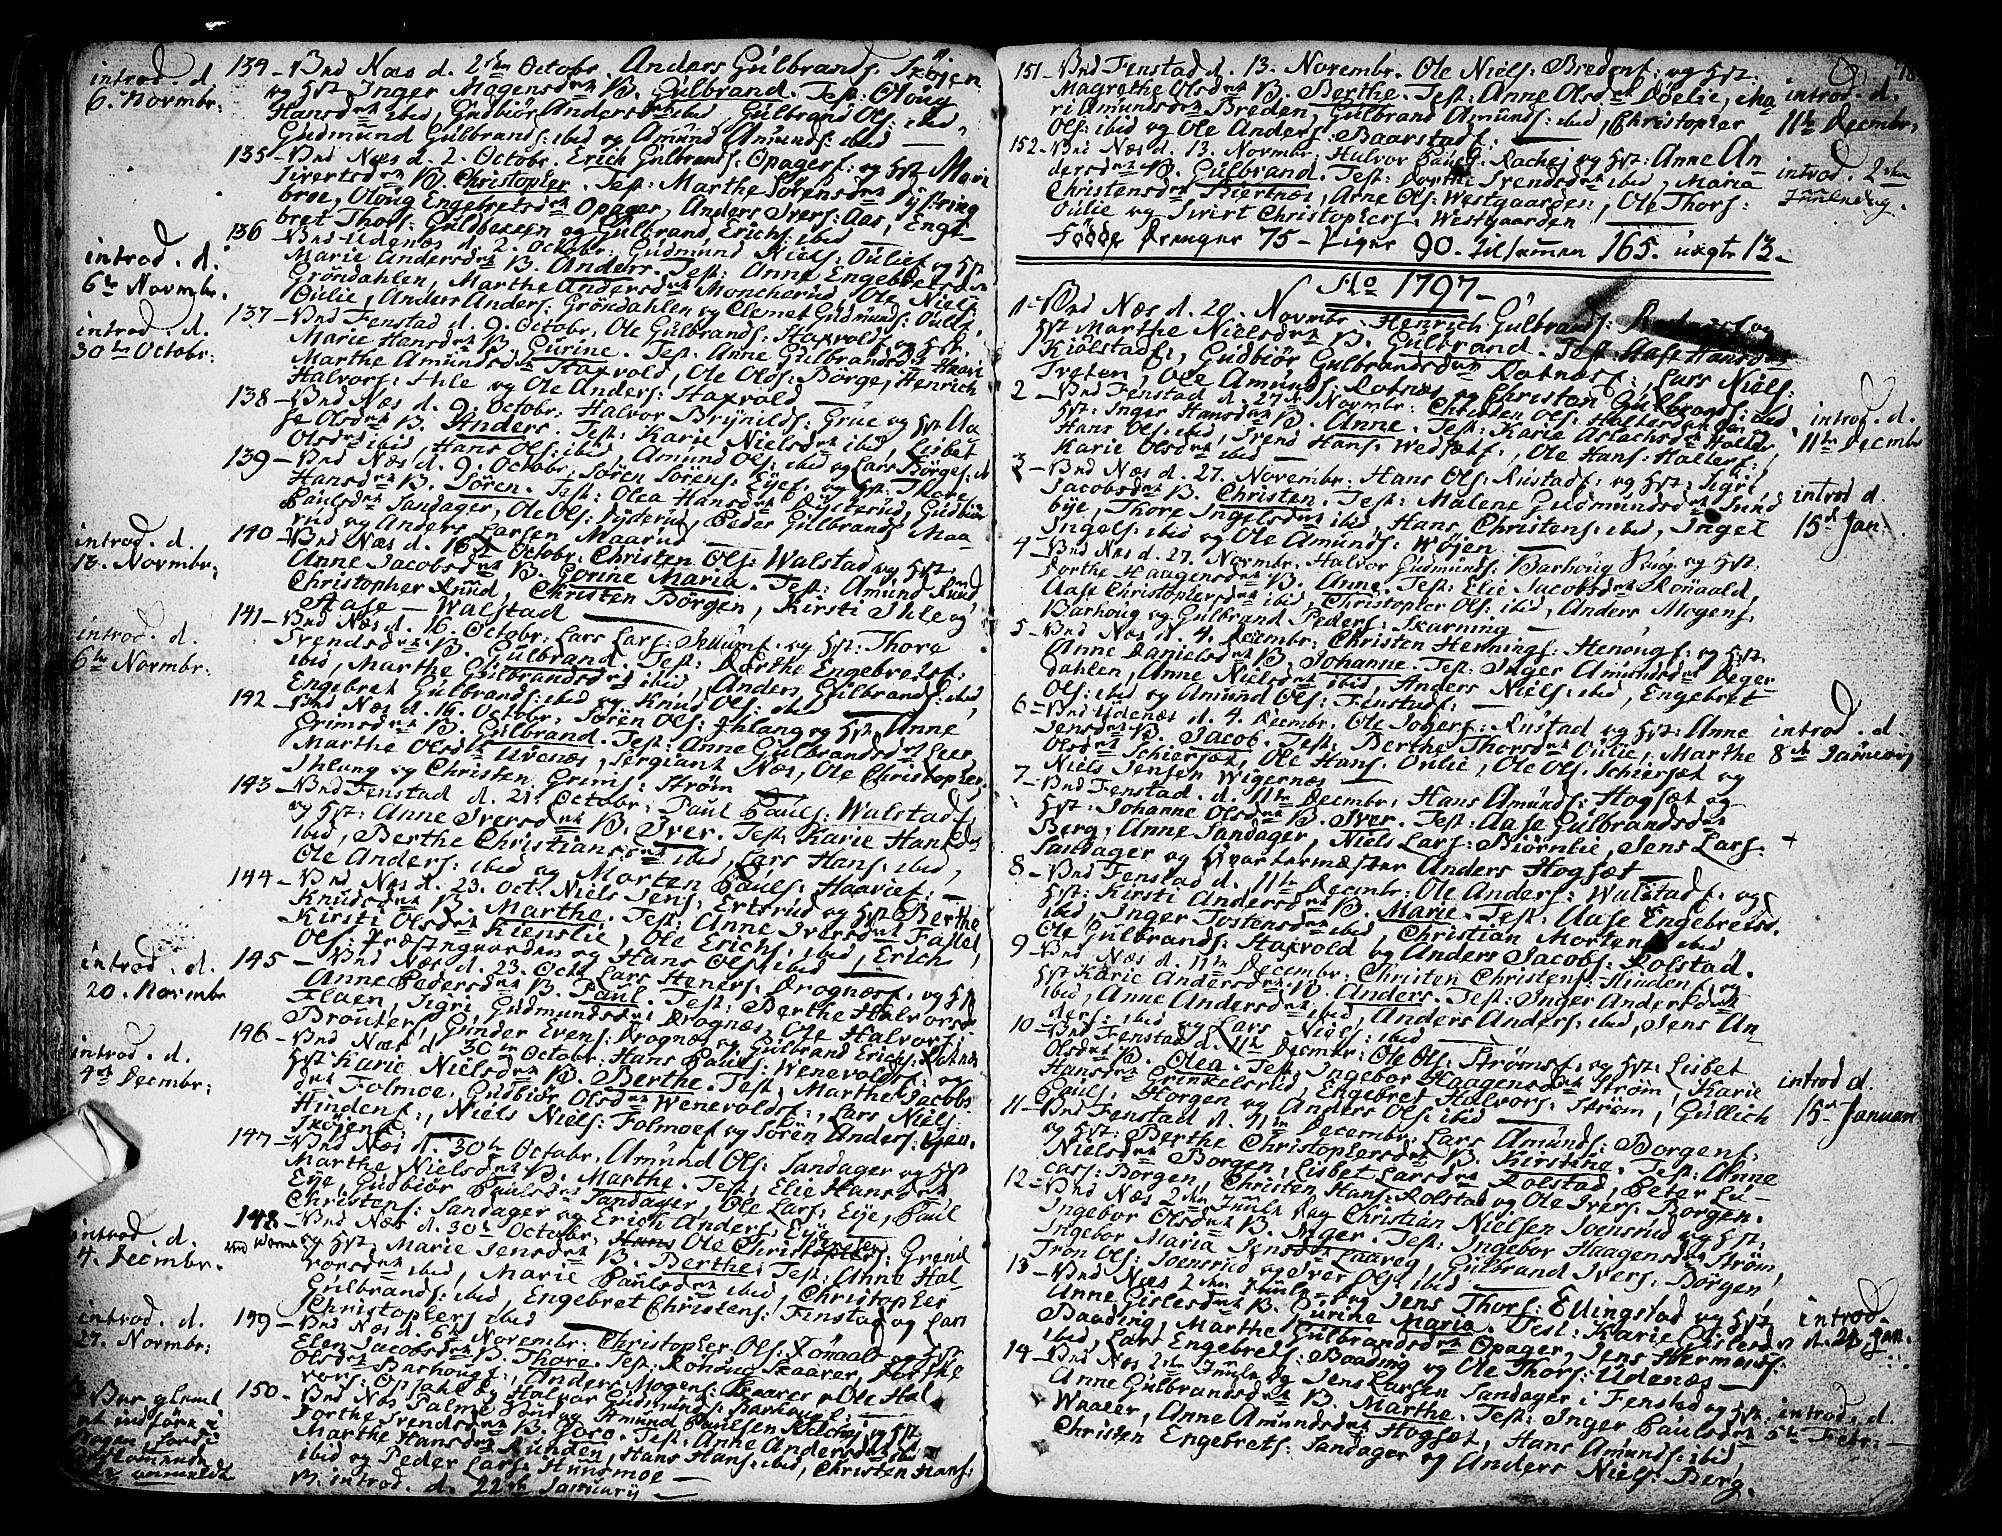 introd. d.
6. Novmbr:
134 - Und Næs d. 2den Octobr. Anders Gulbrands: Skøjen
og Hst Inger Mogensdtr B. Gulbrand. Test: Oloug
Hansdtr ibid, Gudbiør Andersdtr ibid, Gulbrand Ols: ibid,
Gudmund Gulbrands: ibid og Amund Amunds: ibid —
135 - Und Næs d. 2. Octobr. Erich Gulbrands: Opagers: og Hst Mari
Sivertsdtr B. Christopher. Test: Marthe Sørensdtr Dystring
broe, Oloug Engebretsdtr Opager, Anders Ivers: Aas, Enge
bret Thors: Guldbechen og Gulbrand Erichs: ibid
introd. d.
6te Novmbr.
136 - Und Udenæs d. 2. Octobr: Gudmund Niels: Oulie og Hst
Marie Andersdtr B. Anders. Test: Anne Engebretsdtr
Grøndahlen, Marthe Andersdtr Moncherud, Ole Niels:
Oulie, Anders Anders: Grøndahlen og Clemet Gudmunds: Oulie.
introd. d.
30te Octobr:
137 - Und Fenstad d. 9. Octobr, Ole Gulbrands: Haxvold og Hst.
Marie Hansdtr B. Gurine. Test: Anne Gulbrandsdtr Haavi
Marthe Amundsdtr Haxvold, Ole Ols: Børge, Henrich
Halvors: Ihle og Ole Anders: Haxvold —
138 - Und Næs d. 9. Octobr: Halvor Brynilds: Grue og Hst Aa
se Olsdtr B. Anders. Test: Karie Nielsdtr ibid, Lisbet
Olsdtr ibid, Hans Ols: ibid, Amund Ols: ibid og Lars Børges: ibid
139 - Und Næs d. 9. Octobr. Søren Sørens: Eye: og Hst: Thore
Hansdtr B. Søren. Test: Olea Hansdtr Dysterud, Gudbiør
Paulsdtr Sandager, Ole Ols: Dysterud, Peder Gulbrands: Maa-
rud og Anders Larsen Maarud
introd. d.
13. Novmbr:
140 - Und Næs. d. 16. Octobr: Christen Ols: Walstad og Hst:
Anne Jacobsdtr B. Gorine Maria. Test: Amund Rund
Christopher Rund, Christen Børgen, Kirsti Ihle og
Aase — Walstad —
introd. d.
6te Novmbr:
141 - Und Næs. d. 16. Octobr: Lars Lars: og Hst: Thore
Svendsdtr B. Gulbrand. Test: Dorthe Engebretsd:
ibid, Marthe Gulbrandsdtr ibid, Anders Gulbrands: ibid,
Engebret Gulbrands: ibid og Knud Ols: ibid
142 - Und Næs d. 16. Octobr: Søren Ols: Ihlang og Hst Anne
Grimsdtr B. Gulbrand. Test: Anne Gulbrandsdtr Leer,
Marthe Olsdtr Uvenæs, Sergiant Næs, Ole Christophers:
Ihlang og Christen Grims: Strøm —
143 - Und Fenstad d. 21. Octobr: Paul Pauls: Walstad:
og Hst: Anne Iversdtr B. Iver. Test: Karie Hansdtr
ibid, Berthe Christiansdtr ibid, Lars Hans: ibid,
Ole Anders: ibid og Morten Pauls: Haavie: —
144 - Und Næs d. 23. Oct. Niels Jens: Ertsrud og Hst Berthe
Knudsdtr B. Marthe. Test: Anne Iversdtr Fallet
Kirsti Olsdtr Kienslie, Ole Erichs: ibid, Erich
Ols: Præstegaarden og Hans Ols: ibid
introd. d.
20. Novmbr
145 - Und Næs. d. 23. Octb. Lars Heners: Drognæs: og Hst
Anne Pedersdtr B. Paul. Test: Berthe Halvorsdtr
Flaen, Sigri Gudmundsdtr Drognæs, Ole Halvors:
Brouter, Gunder Evens: Drognæs og Gulbrand Erichs: Rotnæs
introd. d.
4de Decmbr:
146 - Und Næs d. 30te Octobr: Hans Pauls: Wenevolds: og
Hst Karie Nielsdtr B. Berthe. Test: Marthe Jacobs
dtr Folmoe, Gudbiør Olsdtr Wenevolds:, Lars Niels:
Hindens:, Niels Niels: Folmoe og Søren Anders: Gjen.
Skøjens: —
147 - Und Næs d. 30te Octobr. Amund Ols: Sandager og Hst
Marthe Nielsdtr B. Marthe. Test: Elie Hansdtr
Eye, Gudbiør Paulsdtr Sandager, Ole Lars: Eye, Paul
Christens: Sandager og Erich Anders: Eye
introd. d.
4. Decmbr.
148 - Und Næs d. 30te Octobr: Hans Ole Christophers: Greni
og Hst: Marie Jensdtr B. Berthe. Test: Anne Hal-
vorsdtr ibid, Marie Paulsdtr ibid, Christopher
Gulbrands: ibid, Engebret Christens: Finstad og Lars
Christophers ibid —
introd. d.
27. Novmbr:
149 - Und Næs d. 6te Novembr: Christopher Ols: Rønaals og Hst
Elen Jacobsdtr B. Thore. Test: Rønoug Skaarer, Dorthe
Olsdtr Barhougs:, Anders Mogens: Skaarer, Ole Hal
vors: Opsahl og Halvor Gudmunds: Barhoug: —
150 - Und Næs Amund Paulsen og Hst
Dorthe Svendsdtr B. Poro. Test: Anne Andersdtr ibid,
Marthe Hansdtr Runden, Hans Hans: ibid, Christen Hans:
ibid og Peder Lars: Huusmoe —
B. introd. d. 22de Januarij
151 - Und Fenstad d. 13. Novembr. Ole Niels: Bredens: og Hst:
Magrethe Olsdtr B. Berthe. Test: Anne Olsdtr Døelie, Ma
ri Amundsdtr Breden, Gulbrand Amunds: ibid, Christopher
Ols: ibid og Ole Anders: Baarstad: —
introd. d.
11te Decmbr:
152 - Und Næs. d. 13. Novmbr: Halvor Pauls: Rachej og Hst: Anne An
dersdtr B. Gulbrand. Test: Dorthe Svendsdtr ibid, Maria
Christensdtr Kiernæs, Arne Ols: Westgaarden:, Ole Thors:
Oulie og Sivert Christophers: Westgaarden —
introd. 2den
Juuledag.
Fødde Drenger 75 - Piger 90 - Tilsamen 165. uægte 13 -
Ao 1797 —
1 - Und Næs d. 20. Novmbr: Henrich Gulbrands: Rotnæs og
Hst Marthe Nielsdtr B. Gulbrand. Test: Aase Hansdtr
Kiølstads:, Gudbiør Gulbrandsdtr Rotnæs:, Lars Niels:
Tveten, Ole Amunds: Rotnæs og Christen Gulbrands: ibid
2 - Und Fenstad d. 27de Novmbr: Christen Ols: Halters: og
Hst: Inger Hansdtr B. Anne. Test: Karie Aslachsdtr Halter
Hans Ols: ibid, Svend Hans: Wedsæt:, Ole Hans: Halters:
Karie Olsdtr ibid —
introd. d.
11te Decmbr
3 - Und Næs d. 27. Novembr: Hans Ols: Rustads: og Hst: Sigri
Jacobsdtr B. Christen. Test: Malene Gudmundsdtr Sund
bye, Thore Ingelsdtr ibid, Hans Christens: ibid, Ingel
Ingels: ibid og Ole Amunds: Wøjen —
introd d.
15de Jan:
4 - Und Næs d. 27. Novmbr: Halvor Gudmunds: Barhoug Ring og Hst:
Dorthe Haagensdtr B. Anne. Test: Elie Jacobsdtr Rønaald,
Aase Christophersdtr ibid, Christopher Ols: ibid, Anders Mogens:
Barhoug og Gulbrand Peders: Skarning —
5 - Und Næs d. 4. Decmbr: Christen Hennings: Henoug: og Hst:
Anne Danielsdtr B. Johanne. Test: Inger Amundsdtr Deger-
dahlen, Anne Nielsdtr ibid, Anders Niels: ibid, Engebret
Ols: ibid og Amund Ols: Fenstads: —
6 - Und Udenæs d. 4. Decmbr: Ole Joger: Rustad og Hst: Anne
Jensdtr B. Jacob. Test: Berthe Thorsdtr Oulie, Marthe
Olsdtr Schiersæt, Ole Hans: Oulie, Ole Ols: Schiersæt og
Niels Jensen Wigernæs —
introd. d.
8de Januarij
7 - Und Fenstad. d. 11te Decmbr: Hans Amunds: Hogsæt og
Hst: Johanne Olsdtr B. Iver. Test: Aase Gulbrandsdtr
Berg, Anne Sandager, Niels Lars: Biørnlie, Jens Lars: +
Sandager og Qvartermæster Anders Hogsæt —
8 - Und Fenstad d. 11te Decmbr: Ole Anders: Walstads: og
Hst: Kirsti Andersdtr B. Marie. Test: Aase Engebretsd:
ibid, Inger Tostensdtr ibid, Christian Mortens: ibid
Ole Gulbrands: Haxvold og Anders Jacobs: Rolstad.
9 - Und Næs d. 11te Decmbr: Christen Christens: Hinden: og
Hst Karie Andersdtr B. Anders. Test: Inger Andersdtr
ibid, Anne Andersdtr ibid, Anders Anders: ibid, Jens An
ders: ibid og Lars Niels: ibid —
10 - Und Fenstad d. 11te Decmbr: Ole Ols: Strøms: og Hst: Lisbet
Olsdtr B. Olea. Test: Ingebor Haagensdtr Strøm, Karie
Hansdtr Grinkelsrud, Engebret Halvors: Strøm, Gullich
Pauls: Horgen og Anders Ols: ibid —
introd d.
15de Januari
11 - Und Fenstad d. 11te Decembr: Lars Amunds: Borgens:
og Hst: Berthe Christophersdtr B. Kirstine. Test: Anne
Nielsdtr Borgen, Lisbet Larsdtr Rolstad, Peter Lu-
cas: Borgen, Christen Hans: Rolstad og Ole Ivers: Borgen.
12 - Und Næs 2den Juule dag Christian Nielsen Joensrud og Hst:
Ingebor Olsdtr B. Inger. Test: Ingebor Haagensdtr Strøm,
Ingebor Maria Jensdtr Laaveg, Gulbrand Ivers: Børgen,
Tron Ols: Joensrud og Iver Ols: ibid —
13 - Und Næs 2den Juule dag Jens Thors: Ellingstad og Hst
Anne Gislesdtr B. Gurine Maria. Test: Karie Gislesdtr
Baading, Marthe Gulbrandsdtr Opager, Jens Hermands:
ibid, Lars Engebrets: Baading og Ole Thors: Udenæs —
introd.
d. 22 Jan.
14 - Und Næs 2den Juule dag Jens Larsen Sandager i Fenstad og Hst.
Anne Gulbrandsdtr B. Marthe. Test: Inger Paulsdtr
Waaler, Anne Amundsdtr Hogset, Hans Amunds: ibid,
Christen Engebrets: Sandager og Anders Niels: Berg.
introd. d.
5te Febr: —